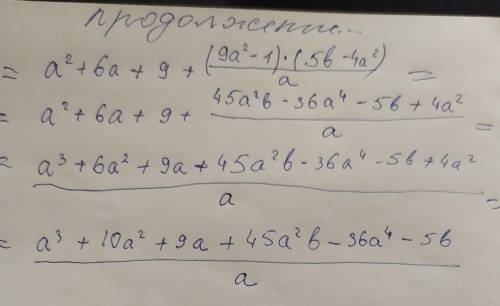 продолжение...
= a² + 6a + 9 + (9a² - 1)·(5b - 4a²) / a =
= a² + 6a + 9 + 45a²b - 36a⁴ - 5b + 4a² / a =
= a³ + 6a² + 9a + 45a²b - 36a⁴ - 5b + 4a² / a =
= a³ + 10a² + 9a + 45a²b - 36a⁴ - 5b / a